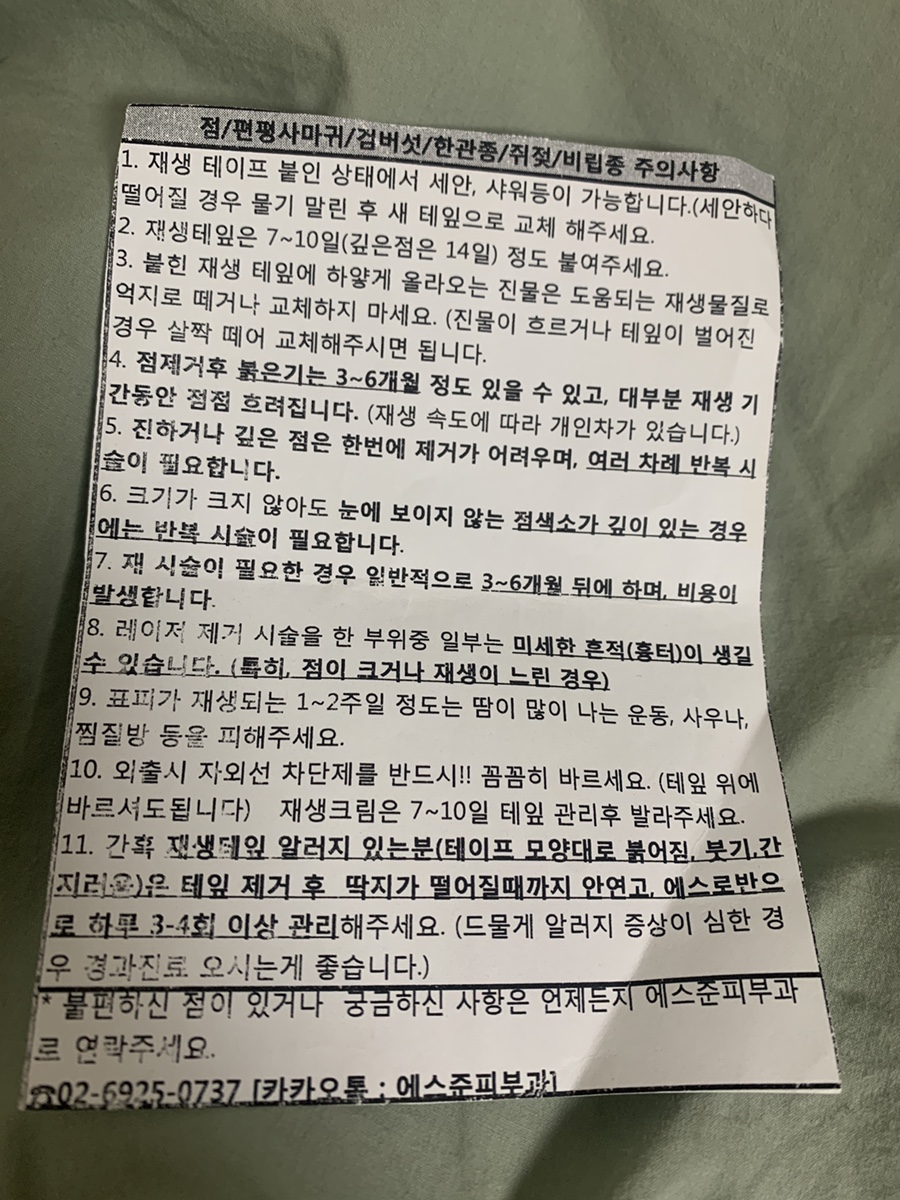 점/편평사마귀/검버섯/한관종/쥐젖/비립종 주의사항
1. 재생 테이프 붙인 상태에서 세안, 샤워등이 가능합니다.(세안하다
떨어질 경우 물기 말린 후 새 테잎으로 교체 해주세요.
2. 재생테잎은 7~10일(깊은점은 14일) 정도 붙여주세요.
3. 붙힌 재생 테잎에 하얗게 올라오는 진물은 도움되는 재생물질로
억지로 떼거나 교체하지 마세요. (진물이 흐르거나 테잎이 벌어진
경우 살짝 떼어 교체해주시면 됩니다.
4. 점제거후 붉은기는 3~6개월 정도 있을 수 있고, 대부분 재생 기
간동안 점점 흐려집니다. (재생 속도에 따라 개인차가 있습니다.)
5. 진하거나 깊은 점은 한번에 제거가 어려우며, 여러 차례 반복 시
술이 필요합니다.
6. 크기가 크지 않아도 눈에 보이지 않는 점색소가 깊이 있는 경우
에는 반복 시술이 필요합니다.
7. 재 시술이 필요한 경우 일반적으로 3~6개월 뒤에 하며, 비용이
발생합니다.
8. 레이저 제거 시술을 한 부위중 일부는 미세한 흔적(흉터)이 생길
수 있습니다. (특히, 점이 크거나 재생이 느린 경우)
9. 표피가 재생되는 1~2주일 정도는 땀이 많이 나는 운동, 사우나,
찜질방 등을 피해주세요.
10. 외출시 자외선 차단제를 반드시!! 꼼꼼히 바르세요. (테잎 위에
바르셔도됩니다) 재생크림은 7~10일 테잎 관리후 발라주세요.
11. 간혹 재생테잎 알러지 있는분(테이프 모양대로 붉어짐, 붓기,간
지러움)은 테잎 제거 후 딱지가 떨어질때까지 안연고, 에스로반으
로 하루 3-4회 이상 관리해주세요. (드물게 알러지 증상이 심한 경
우 경과진료 오시는게 좋습니다.)
* 불편하신 점이 있거나 궁금하신 사항은 언제든지 에스준피부과
로 연락주세요.
☎02-6925-0737 [카카오톡 : 에스준피부과]